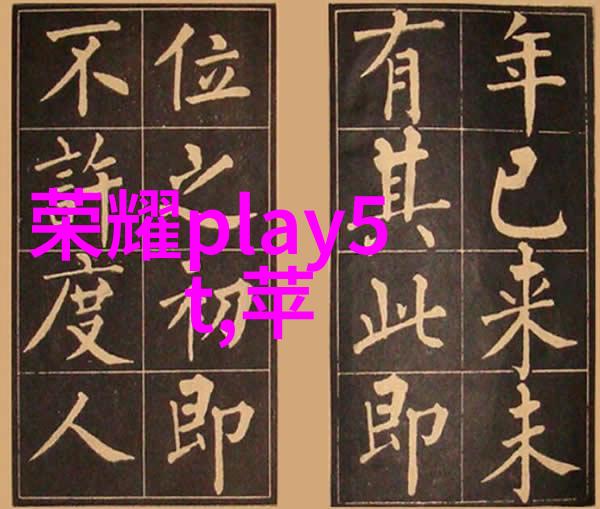 年已来未
有其此即
位之初即
不許度人
荣耀play5
t,苹